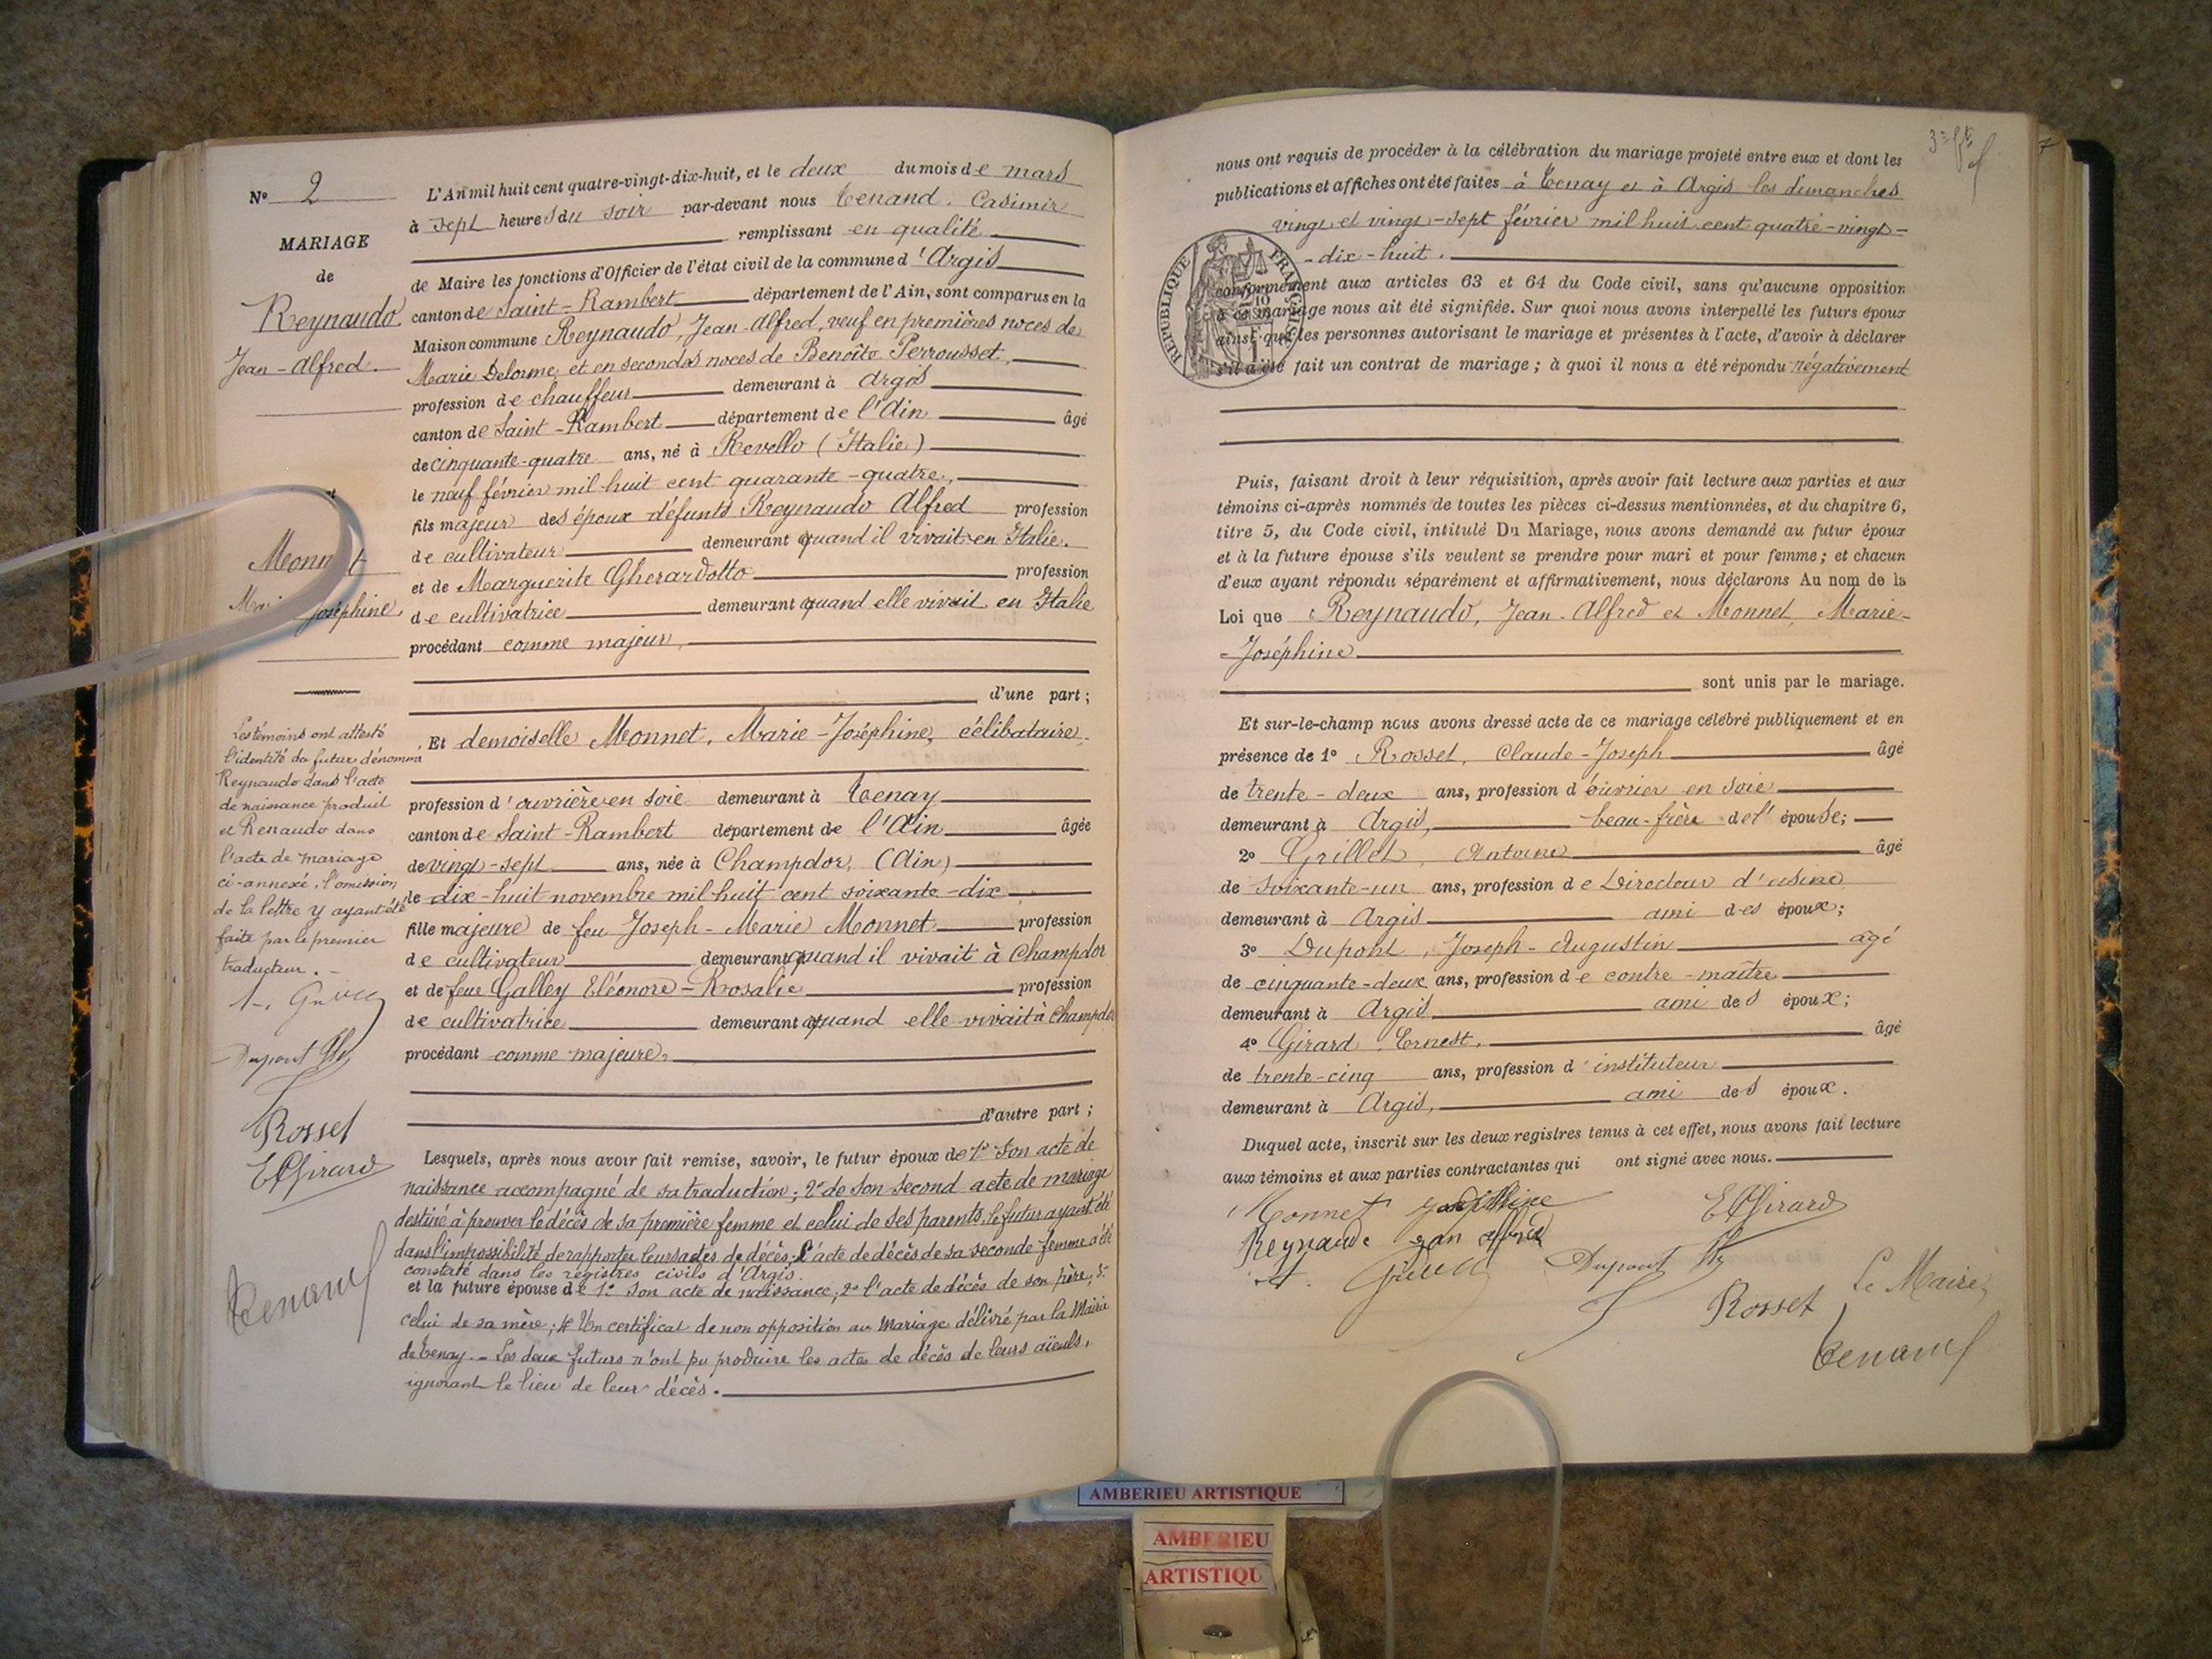 N° 2
MARIAGE
de
Reynaudo
Jean-Alfred
Monnet
Joséphine
Les témoins ont attesté
l'identité du futur dénommé
Reynaudo dans l'acte
de naissance produit
et Renaudo dans
l'acte de mariage
ci-annexé, l'omission
de la lettre y ayant été
faite par le premier
traducteur. -
Dupont
Rosset
E Girard
Tenand
L'An mil huit cent quatre-vingt-dix-huit, et le deux du mois de mars
à sept heures du soir par-devant nous Tenand, Casimir
remplissant en qualité
de Maire les fonctions d'Officier de l'état civil de la commune d'Argis
canton de Saint-Rambert département de l'Ain, sont comparus en la
Maison commune Reynaudo, Jean-Alfred, veuf en premières noces de
Marie Delorme, et en secondes noces de Benoîte Perrousset,
profession de chauffeur demeurant à Argis
canton de Saint-Rambert département de l'Ain âgé
de cinquante-quatre ans, né à Revello (Italie)
le neuf février mil huit cent quarante-quatre,
fils majeur des époux défunts Reynaudo Alfred profession
de cultivateur demeurant quand il vivait en Italie.
et de Marguerite Gherardotto profession
de cultivatrice demeurant quand elle vivait en Italie
procédant comme majeur,
d'une part ;
Et demoiselle Monnet, Marie-Joséphine, célibataire,
profession d'ouvrière en soie demeurant à Tenay
canton de Saint-Rambert département de l'Ain âgée
de vingt-sept ans, née à Champdor, (Ain)
le dix-huit novembre mil huit cent soixante-dix,
fille majeure de feu Joseph-Marie Monnet profession
de cultivateur demeurant quand il vivait à Champdor
et de feue Galley Eléonore-Rosalie profession
de cultivatrice demeurant quand elle vivait à Champdor
procédant comme majeure,
d'autre part ;
Lesquels, après nous avoir fait remise, savoir, le futur époux de 1° Son acte de
naissance accompagné de sa traduction ; 2° de son second acte de mariage
destiné à prouver le décès de sa première femme et celui de ses parents, le futur ayant été
dans l'impossibilité de rapporter leurs actes de décès ; L'acte de décès de sa seconde femme a été
constaté dans les registres civils d'Argis.
et la future épouse de 1° Son acte de naissance ; 2° l'acte de décès de son père ; 3°
celui de sa mère ; 4° Un certificat de non opposition au Mariage délivré par la Mairie
de Tenay. - Les deux futurs n'ont pu produire les actes de décès de leurs aïeuls,
ignorant le lieu de leur décès.
nous ont requis de procéder à la célébration du mariage projeté entre eux et dont les
publications et affiches ont été faites à Tenay et à Argis les dimanches
vingt et vingt-sept février mil huit cent quatre-vingt-
-dix-huit.
RÉPUBLIQUE FRANÇAISE
conformément aux articles 63 et 64 du Code civil, sans qu'aucune opposition
à ce mariage nous ait été signifiée. Sur quoi nous avons interpellé les futurs époux
ainsi que les personnes autorisant le mariage et présentes à l'acte, d'avoir à déclarer
s'il a été fait un contrat de mariage ; à quoi il nous a été répondu négativement
Puis, faisant droit à leur réquisition, après avoir fait lecture aux parties et aux
témoins ci-après nommés de toutes les pièces ci-dessus mentionnées, et du chapitre 6,
titre 5, du Code civil, intitulé Du Mariage, nous avons demandé au futur époux
et à la future épouse s'ils veulent se prendre pour mari et pour femme ; et chacun
d'eux ayant répondu séparément et affirmativement, nous déclarons Au nom de la
Loi que Reynaudo, Jean-Alfred et Monnet, Marie-
-Joséphine
sont unis par le mariage.
Et sur-le-champ nous avons dressé acte de ce mariage célébré publiquement et en
présence de 1° Rosset, Claude-Joseph âgé
de trente-deux ans, profession d'ouvrier en soie
demeurant à Argis, beau-frère de l'épouse ;
2° Grillet, Antoine âgé
de soixante-un ans, profession de Directeur d'usine
demeurant à Argis ami des époux ;
3° Dupont, Joseph-Augustin âgé
de cinquante-deux ans, profession de contre-maître
demeurant à Argis ami des époux ;
4° Girard, Ernest, âgé
de trente-cinq ans, profession d'instituteur
demeurant à Argis, ami des époux.
Duquel acte, inscrit sur les deux registres tenus à cet effet, nous avons fait lecture
aux témoins et aux parties contractantes qui ont signé avec nous.
Monnet Joséphine E Girard
Reynaudo Jean Alfred
Dupont
Le Maire,
Rosset
Tenand
AMBERIEU ARTISTIQUE
AMBERIEU
ARTISTIQU